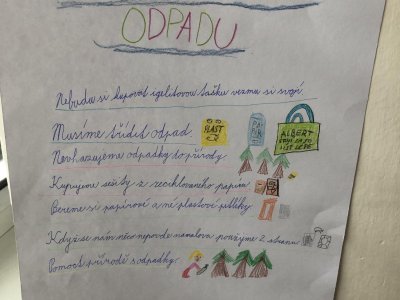 ODPADU
Nebudu si kupovat igelitovou tašku vezmu si svojí.
Musíme třídit odpad.
PLAST
PAPÍR
ALBERT
Nevhazujeme odpadky do přírody
Kupujeme sešity z recyklovaného papíru
Bereme si papírové a né plastové pytlíky
Když se nám něco nepovede namalovat použijme 2 stranu
Pomoct přírodě s odpadky.